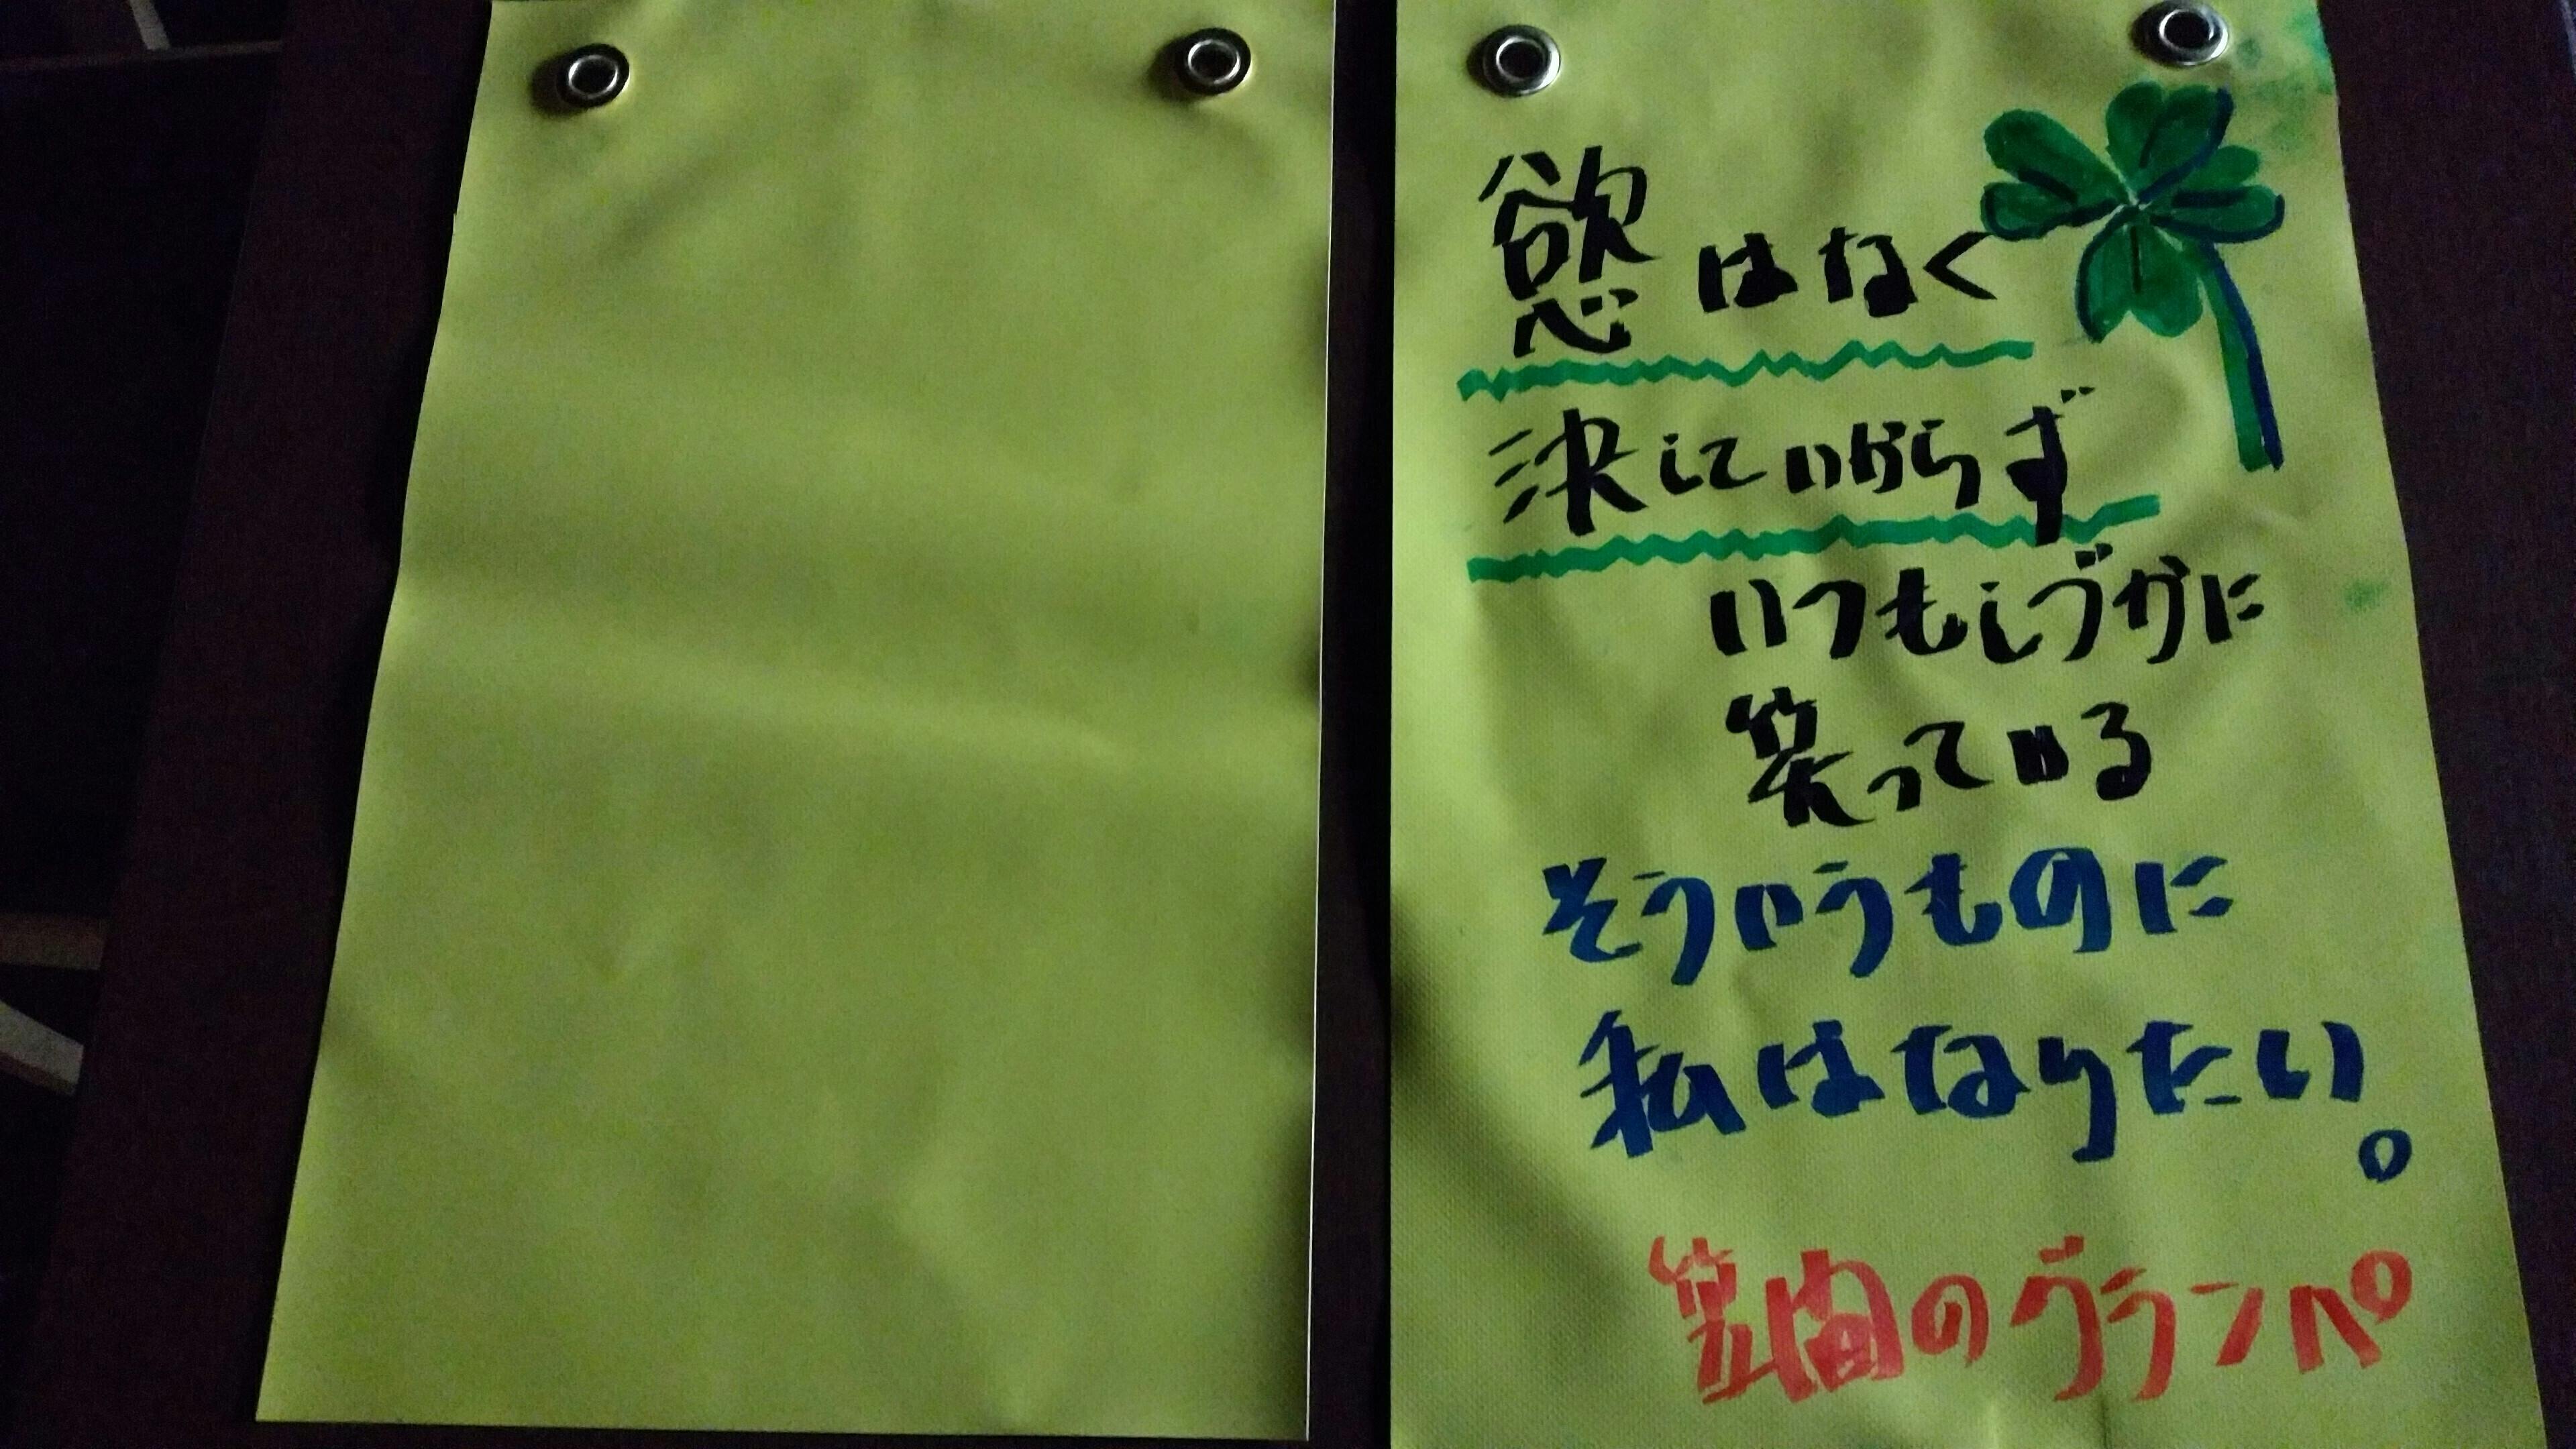 慾はなく
決していからず
いつもしづかに
笑っている
そういうものに
私はなりたい。
のグランパ